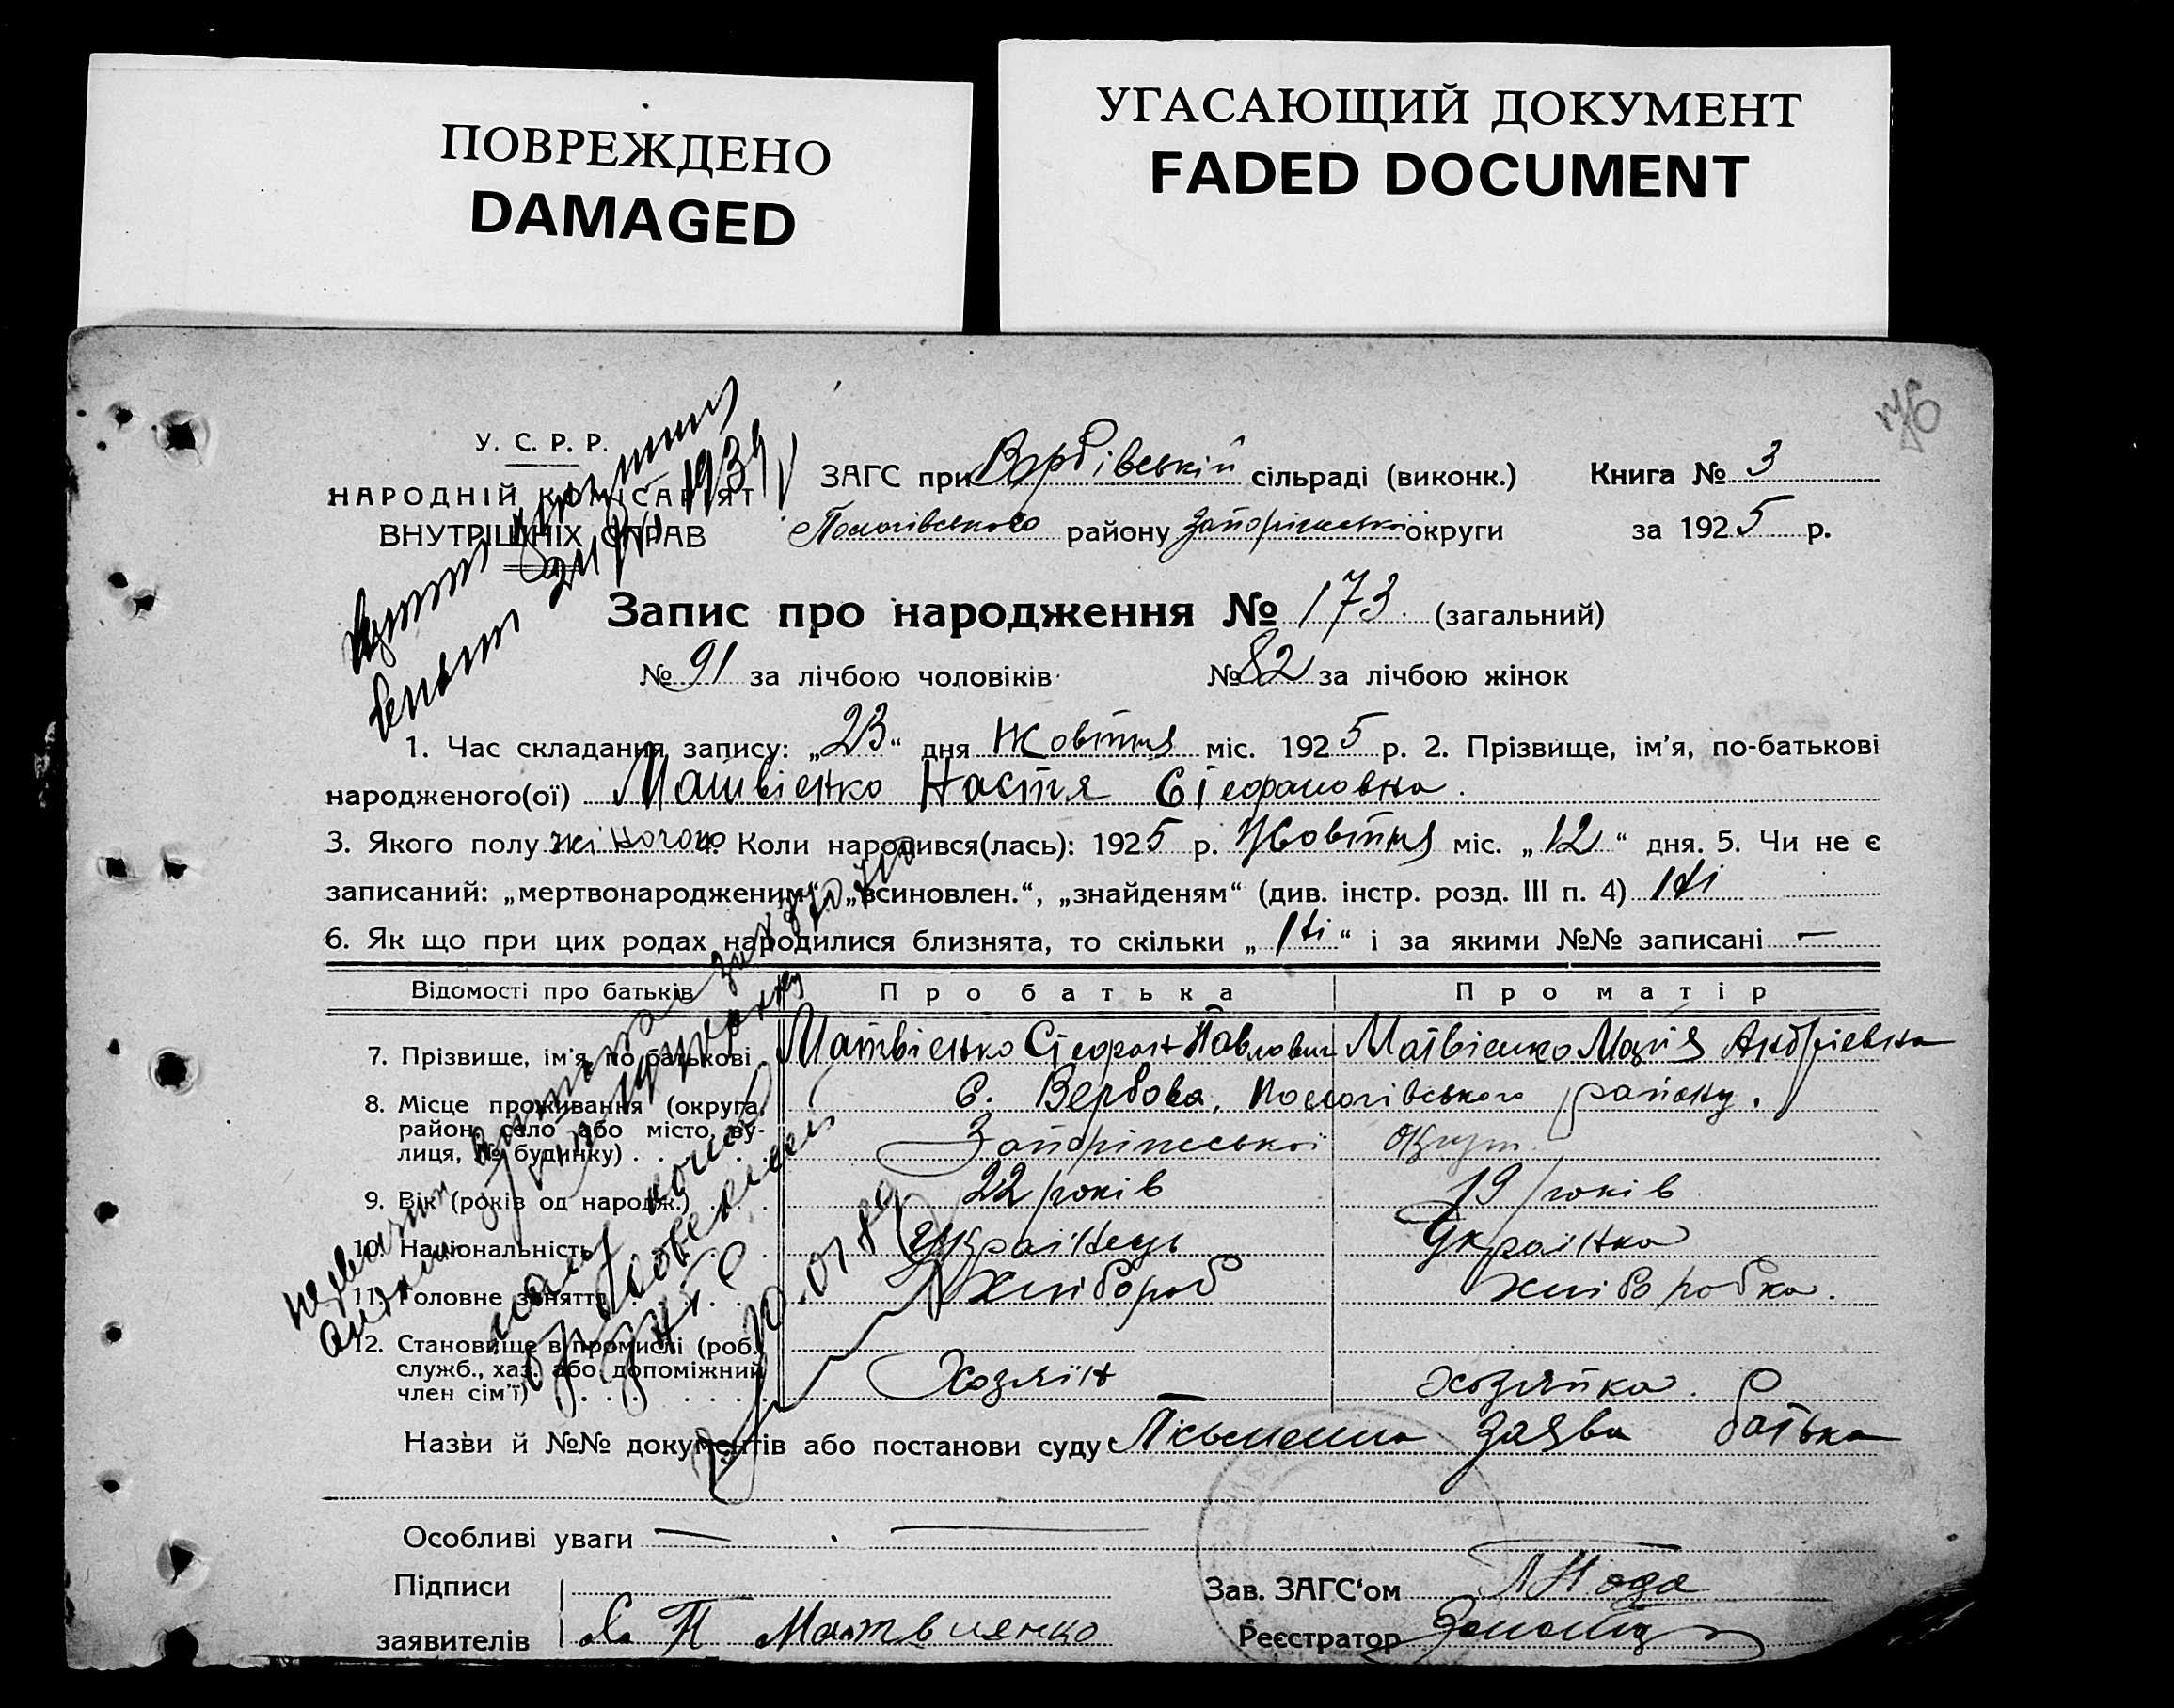 ПОВРЕЖДЕНО
DAMAGED
УГАСАЮЩИЙ ДОКУМЕНТ
FADED DOCUMENT
У. С. Р. Р.
НАРОДНІЙ КОМІСАРІЯТ
ВНУТРІШНІХ СПРАВ
1939
ЗАГС при Вербівській сільраді (виконк.) Книга № 3
Пологівського району Запоріжської округи за 1925 р.
Запис про народження № 173 (загальний)
№ 91 за лічбою чоловіків № 82 за лічбою жінок
1. Час складання запису: „23“ дня Жовтня міс. 1925 р. 2. Прізвище, ім'я, по-батькові
народженого(ої) Матвієнко Настя Стефановна.
3. Якого полу жіночого 4. Коли народився(лась): 1925 р. Жовтня міс. „12“ дня. 5. Чи не є
записаний: „мертвонародженим“, „всиновлен.“, „знайденям“ (див. інстр. розд. III п. 4) Ні
6. Як що при цих родах народилися близнята, то скільки „Ні“ і за якими №№ записані —
Відомості про батьків Про батька Про матір
7. Прізвище, ім'я, по батькові Матвієнко Стефан Павлович Матвієнко Марія Андрієвна
8. Місце проживання (округа, район, село або місто, вулиця, № будинку) С. Вербова, Пологівського району.
Запоріжської округи
9. Вік (років од народж.) 22 років 19 років
10. Національність Українець Українка
11. Головне заняття Хлібороб Хлібо робка.
12. Становище в промислі (роб., служб., хаз. або допоміжний член сім'ї) Хозяїн Хозяйка.
Назви й №№ документів або постанови суду Пісьменна заява батька
Особливі уваги —
Підписи
заявителів С П Матвиянко
Зав. ЗАГС'ом
Реєстратор